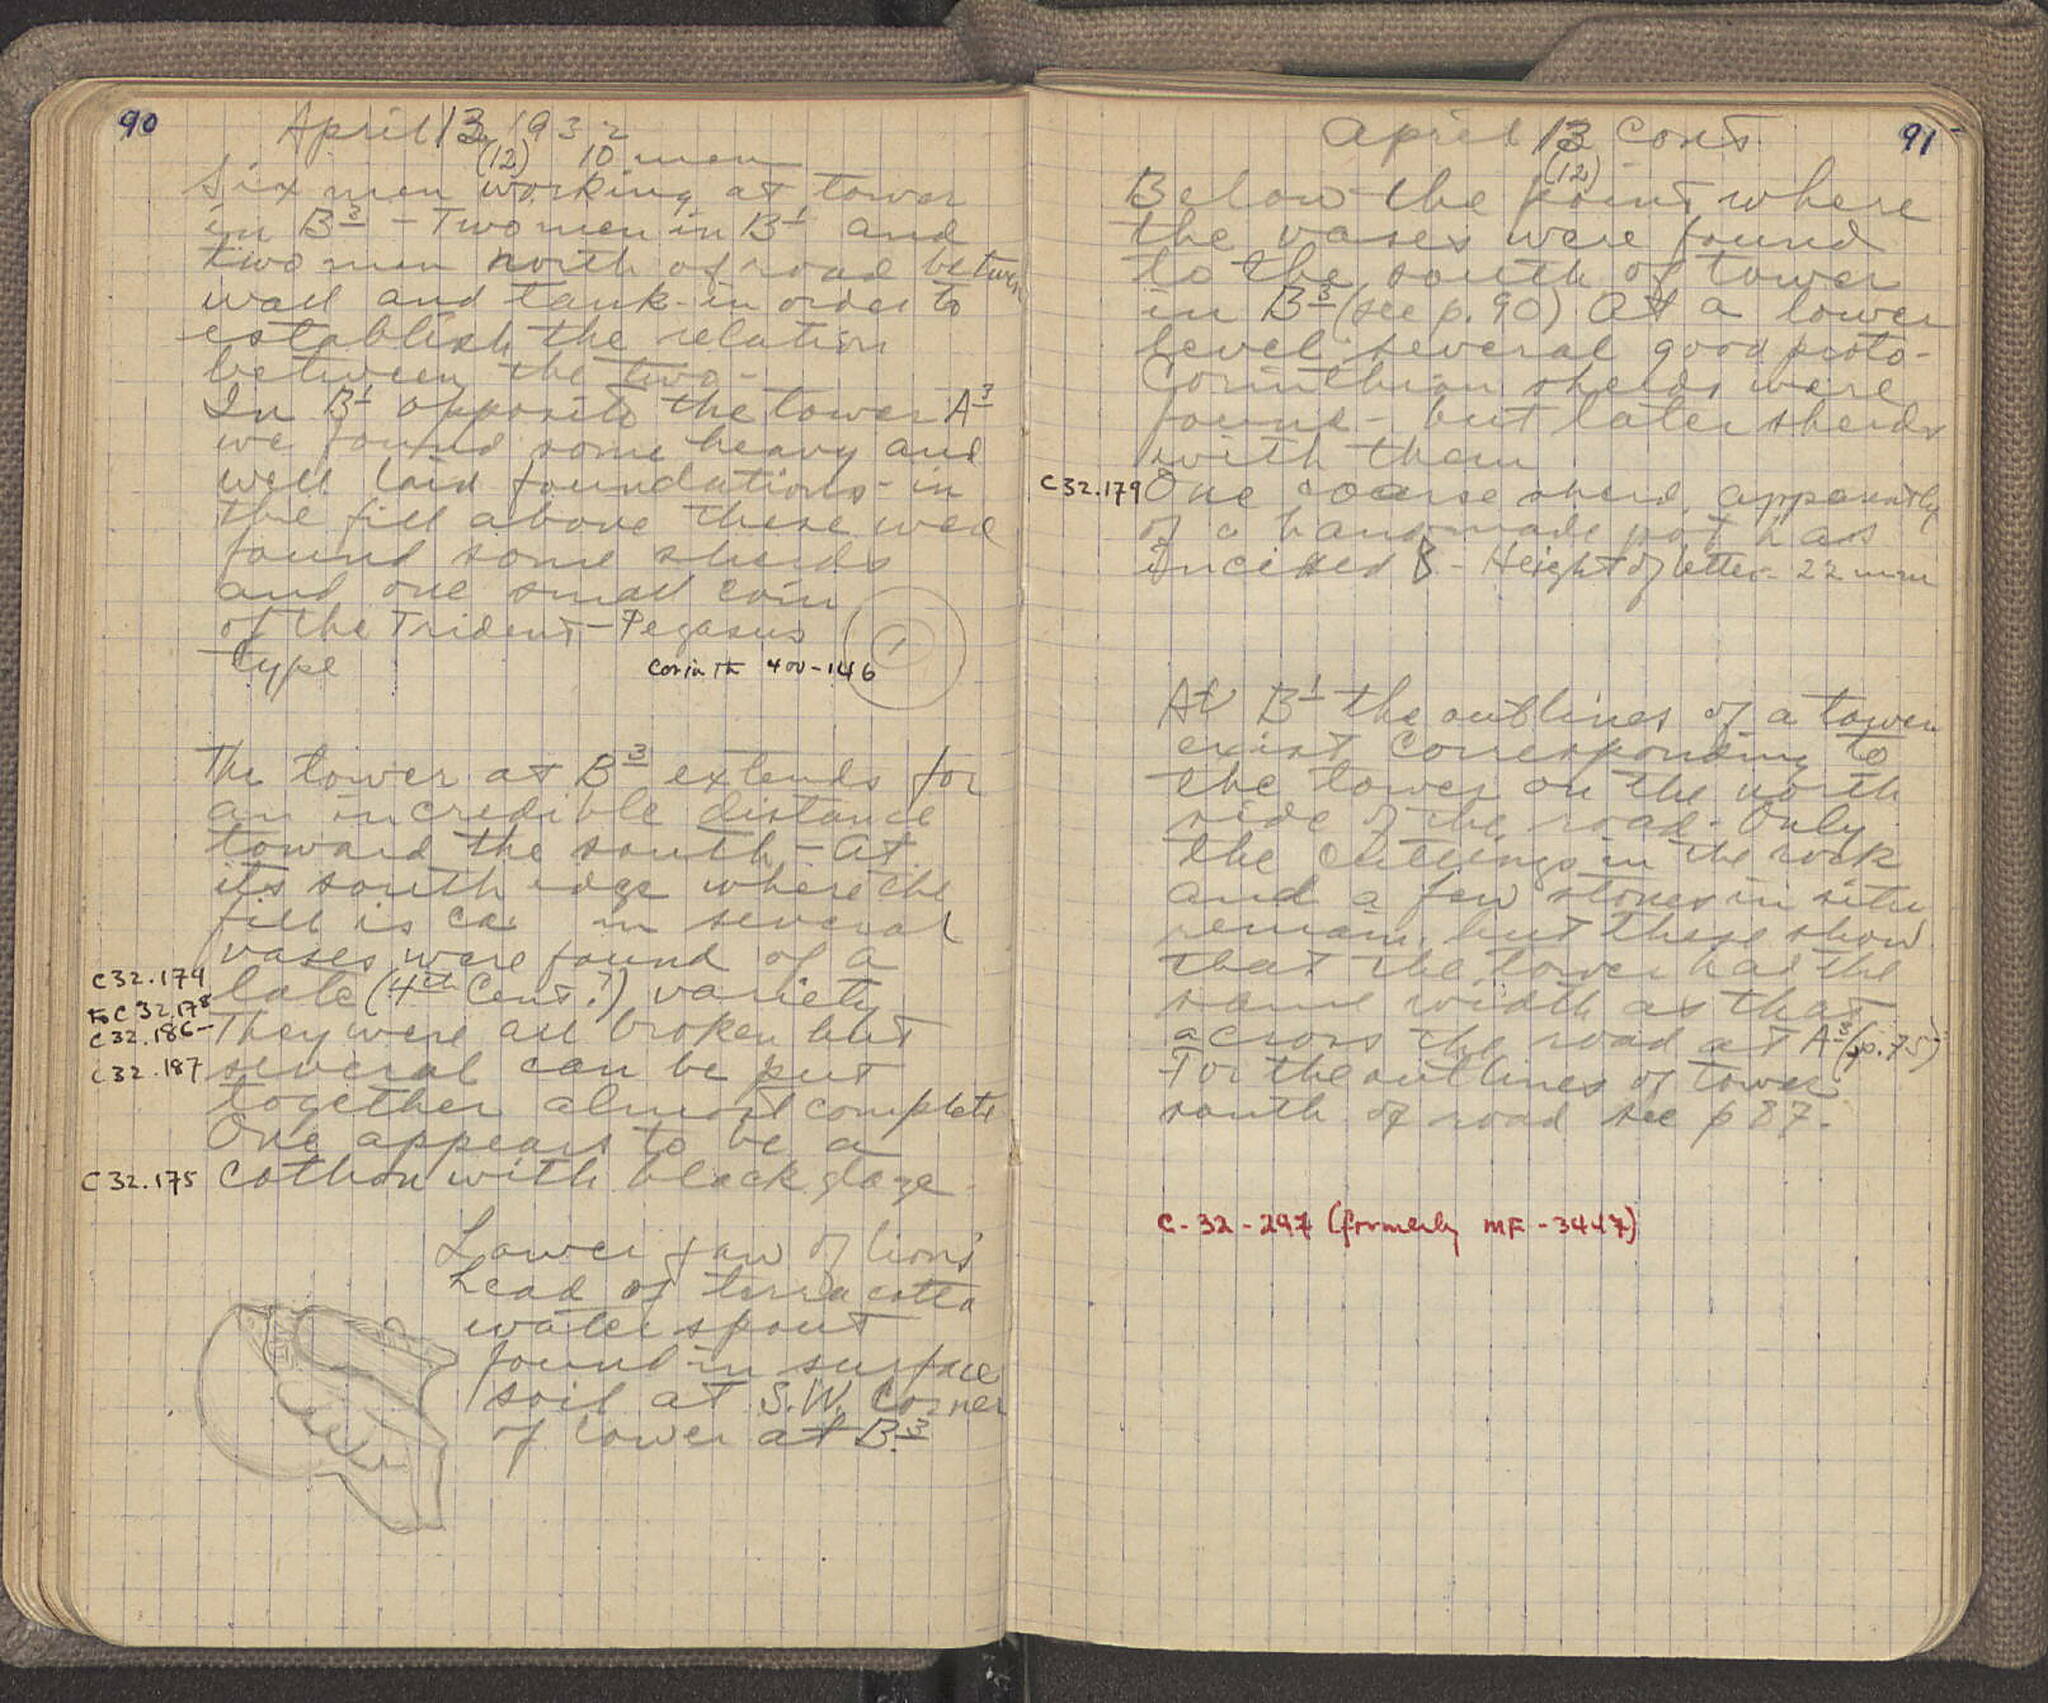 90
April 13 1932
(12) 10 men
Six men working at tower
in B3 - Two men in B1 and
two men north of road between
wall and tank in order to
establish the relation
between the two -
In B1 opposite the tower A3
we found some heavy and
well laid foundations - in
the fill above these we
found some sherds
and one small coin
of the Trident-Pegasus
type
1
Corinth 400-146
The tower at B3 extends for
an incredible distance
toward the south - At
its south edge where the
fill is ca m several
vases were found of a
C32.174 late (4th Cent.?) variety
to C32.178
C32.186- They were all broken but
C32.187 several can be put
together almost complete
One appears to be a
C32.175 cothon with black glaze -
Lower jaw of lion's
head of terra cotta
water spout
found in surface
soil at S.W. corner
of tower at B3
91
April 13 Cont
(12)
Below the point where
the vases were found
to the south of tower
in B3 (see p. 90) At a lower
level several good proto-
Corinthian sherds were
found - but later sherds
with them
C32.179 One coarse sherd, apparently
of a handmade pot has
incised B - Height of letter - 22 mm
At B1 the outlines of a tower
exist corresponding to
the tower on the north
side of the road - Only
the cuttings in the rock
and a few stones in situ
remain, but these show
that the tower had the
same width as that
across the road at A3 (p. 75)
For the outlines of tower
south of road see p 87 -
C-32-297 (formerly MF-3447)